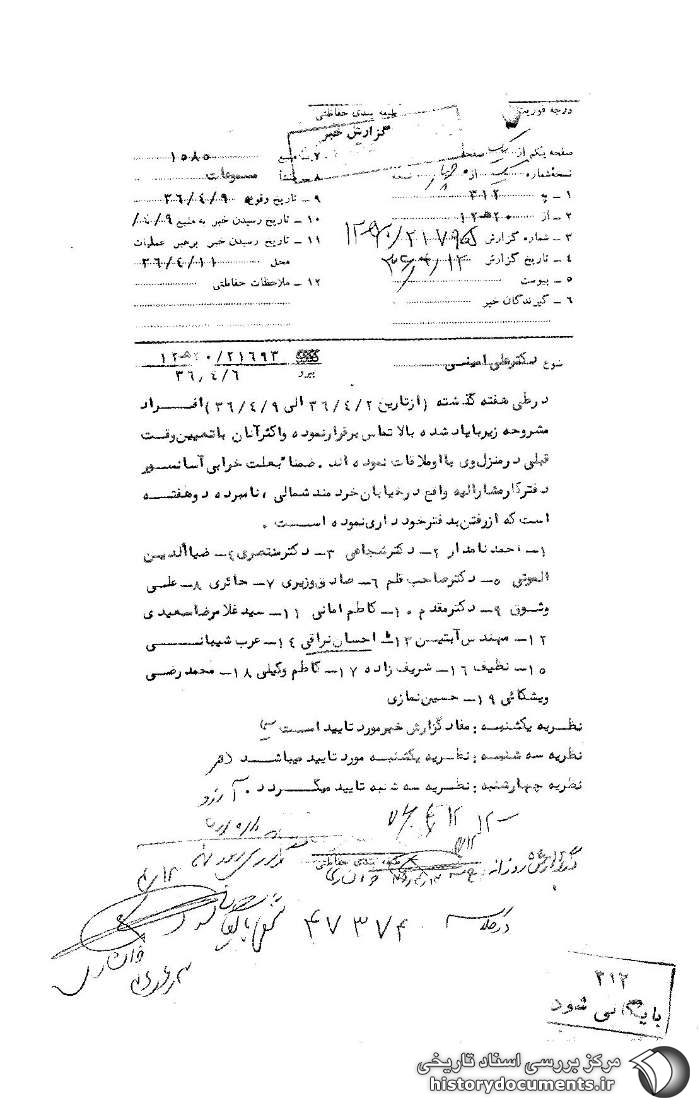 درجه فوریت
طبقه بندی حفاظتی
گزارش خبر
صفحه یکم از یک صفحه
نسخه شماره یک از چهار نسخه
۱ـ به ۳۱۲
۲ـ از ۲۰ه۱۲
۳ـ شماره گزارش
۴ـ تاریخ گزارش
۵ـ پیوست
۶ـ گیرندگان خبر
۷ـ منبع ۱۵۸۵
۸ـ منشأ مسموعات
۹ـ تاریخ وقوع ۳۶/۴/۹
۱۰ـ تاریخ رسیدن خبر به منبع
۱۱ـ تاریخ رسیدن خبر برهبر عملیات
محل ۳۶/۴/۱۱
۱۲ـ ملاحظات حفاظتی
دکتر علی امینی
پیرو ۲۱۶۹۳/۲۰ه۱۲
۳۶/۴/۶
در طی هفته گذشته (از تاریخ ۳۶/۴/۲ الی ۳۶/۴/۹) افراد
مشروحه زیر با یاد شده بالا تماس برقرار نموده و اکثر آنان با تعیین وقت
قبلی در منزل وی با او ملاقات نموده اند . ضمنا بعلت خرابی آسانسور
دفتر کار مشارالیه واقع در خیابان خردمند شمالی ، نامبرده دو هفته
است که از رفتن به دفتر خودداری نموده است .
۱ـ احمد نامدار ۲ـ دکتر شجاعی ۳ـ دکتر منتصری ۴ـ ضیاالدین
الموتی ۵ـ دکتر صاحب قلم ۶ـ صادق وزیری ۷ـ حائری ۸ـ علمی
وثوق ۹ـ دکتر مقدم ۱۰ـ کاظم امانی ۱۱ـ سید غلامرضا سعیدی
۱۲ـ مهندس آبتین ۱۳ـ احسان نراقی ۱۴ـ عرب شیبانی
۱۵ـ نظیف ۱۶ـ شریف زاده ۱۷ـ کاظم وکیلی ۱۸ـ محمد رضی
ویشکائی ۱۹ـ حسین نمازی
نظریه یکشنبه : مفاد گزارش خبر مورد تایید است
نظریه سه شنبه : نظریه یکشنبه مورد تایید میباشد
نظریه چهارشنبه : نظریه سه شنبه تایید میگردد . آرزو
طبقه بندی حفاظتی
۴۷۳۷۴
۳۱۲
بایگانی شود
مرکز بررسی اسناد تاریخی
historydocuments.ir